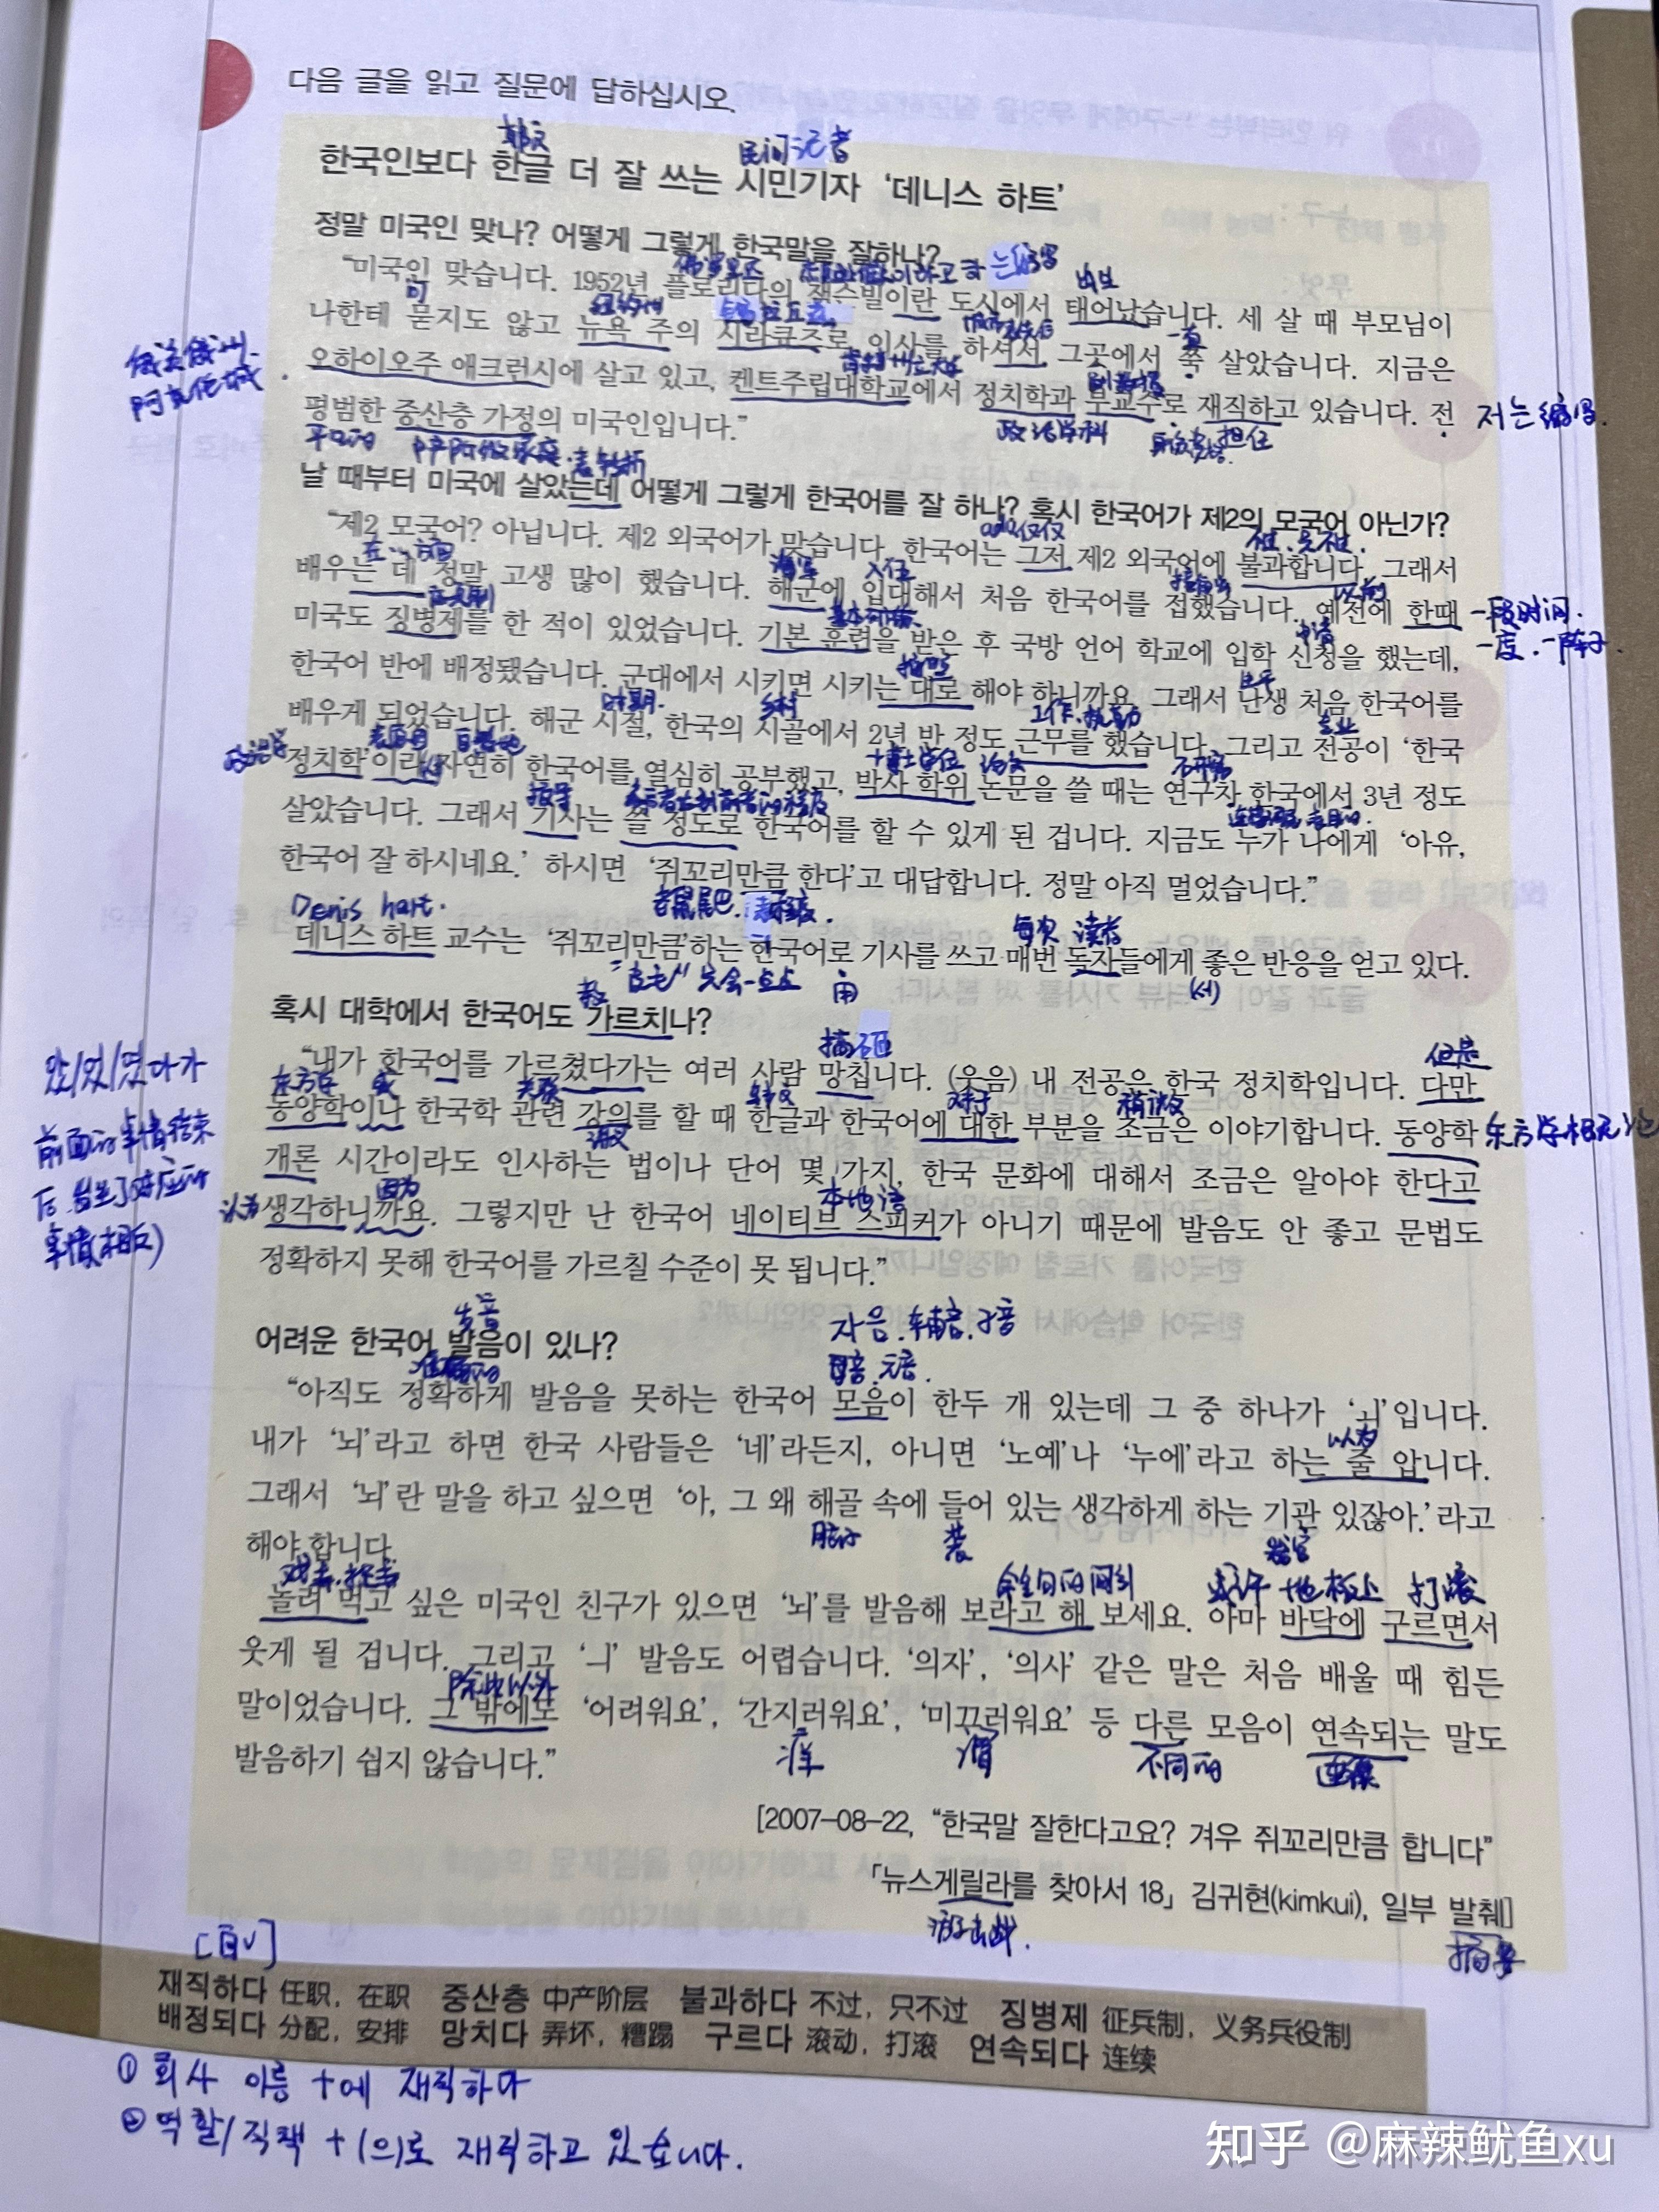 다음 글을 읽고 질문에 답하십시오.
韩文
民间记者
한국인보다 한글 더 잘 쓰는 시민기자 ‘데니스 하트’
정말 미국인 맞나? 어떻게 그렇게 한국말을 잘하나?
“미국인 맞습니다. 1952년 플로리다의 잭스빌이란 도시에서 태어났습니다. 세 살 때 부모님이
나한테 묻지도 않고 뉴욕 주의 시라큐즈로 이사를 하셔서, 그곳에서 쭉 살았습니다. 지금은
오하이오주 애크런시에 살고 있고, 켄트주립대학교에서 정치학과 부교수로 재직하고 있습니다. 전
저는 缩写.
평범한 중산층 가정의 미국인입니다.”
政治学科
担任
날 때부터 미국에 살았는데 어떻게 그렇게 한국어를 잘 하나? 혹시 한국어가 제2의 모국어 아닌가?
“제2 모국어? 아닙니다. 제2 외국어가 맞습니다. 한국어는 그저 제2 외국어에 불과합니다. 그래서
배우는 데 정말 고생 많이 했습니다. 해군에 입대해서 처음 한국어를 접했습니다. 예전에 한때
一段时间.
미국도 징병제를 한 적이 있었습니다. 기본 훈련을 받은 후 국방 언어 학교에 입학 신청을 했는데,
一度. 一阵子.
한국어 반에 배정됐습니다. 군대에서 시키면 시키는 대로 해야 하니까요. 그래서 난생 처음 한국어를
배우게 되었습니다. 해군 시절, 한국의 시골에서 2년 반 정도 근무를 했습니다. 그리고 전공이 ‘한국
정치학’이라 자연히 한국어를 열심히 공부했고, 박사 학위 논문을 쓸 때는 연구차 한국에서 3년 정도
살았습니다. 그래서 기사는 쓸 정도로 한국어를 할 수 있게 된 겁니다. 지금도 누가 나에게 ‘아유,
한국어 잘 하시네요.’ 하시면 ‘쥐꼬리만큼 한다’고 대답합니다. 정말 아직 멀었습니다.”
Denis hart.
老鼠尾巴.
每次 读者
데니스 하트 교수는 ‘쥐꼬리만큼’하는 한국어로 기사를 쓰고 매번 독자들에게 좋은 반응을 얻고 있다.
教
用
혹시 대학에서 한국어도 가르치나?
았/었/였다가
前面的事情结束
后. 发生了对应的
事情(相反)
“내가 한국어를 가르쳤다가는 여러 사람 망칩니다. (웃음) 내 전공은 한국 정치학입니다. 다만
동양학이나 한국학 관련 강의를 할 때 한글과 한국어에 대한 부분을 조금은 이야기합니다. 동양학
개론 시간이라도 인사하는 법이나 단어 몇 가지, 한국 문화에 대해서 조금은 알아야 한다고
생각하니까요. 그렇지만 난 한국어 네이티브 스피커가 아니기 때문에 발음도 안 좋고 문법도
정확하지 못해 한국어를 가르칠 수준이 못 됩니다.”
发音
자음. 辅音. 子音
母音. 元音.
어려운 한국어 발음이 있나?
“아직도 정확하게 발음을 못하는 한국어 모음이 한두 개 있는데 그 중 하나가 ‘뇌’입니다.
내가 ‘뇌’라고 하면 한국 사람들은 ‘네’라든지, 아니면 ‘노예’나 ‘누에’라고 하는 줄 압니다.
그래서 ‘뇌’란 말을 하고 싶으면 ‘아, 그 왜 해골 속에 들어 있는 생각하게 하는 기관 있잖아.’라고
해야 합니다.
装
器官
놀려 먹고 싶은 미국인 친구가 있으면 ‘뇌’를 발음해 보라고 해 보세요. 아마 바닥에 구르면서
웃게 될 겁니다. 그리고 ‘ㅢ’ 발음도 어렵습니다. ‘의자’, ‘의사’ 같은 말은 처음 배울 때 힘든
말이었습니다. 그 밖에도 ‘어려워요’, ‘간지러워요’, ‘미끄러워요’ 등 다른 모음이 연속되는 말도
발음하기 쉽지 않습니다.”
痒
滑
不同的
连续
[2007-08-22, “한국말 잘한다고요? 겨우 쥐꼬리만큼 합니다”
「뉴스게릴라를 찾아서 18」 김귀현(kimkui), 일부 발췌]
游击战.
재직하다 任职, 在职 중산층 中产阶层 불과하다 不过, 只不过 징병제 征兵制, 义务兵役制
배정되다 分配, 安排 망치다 弄坏, 糟蹋 구르다 滚动, 打滚 연속되다 连续
① 회사 이름 +에 재직하다
② 역할/직책 +(으)로 재직하고 있습니다.
知乎 @麻辣鱿鱼xu